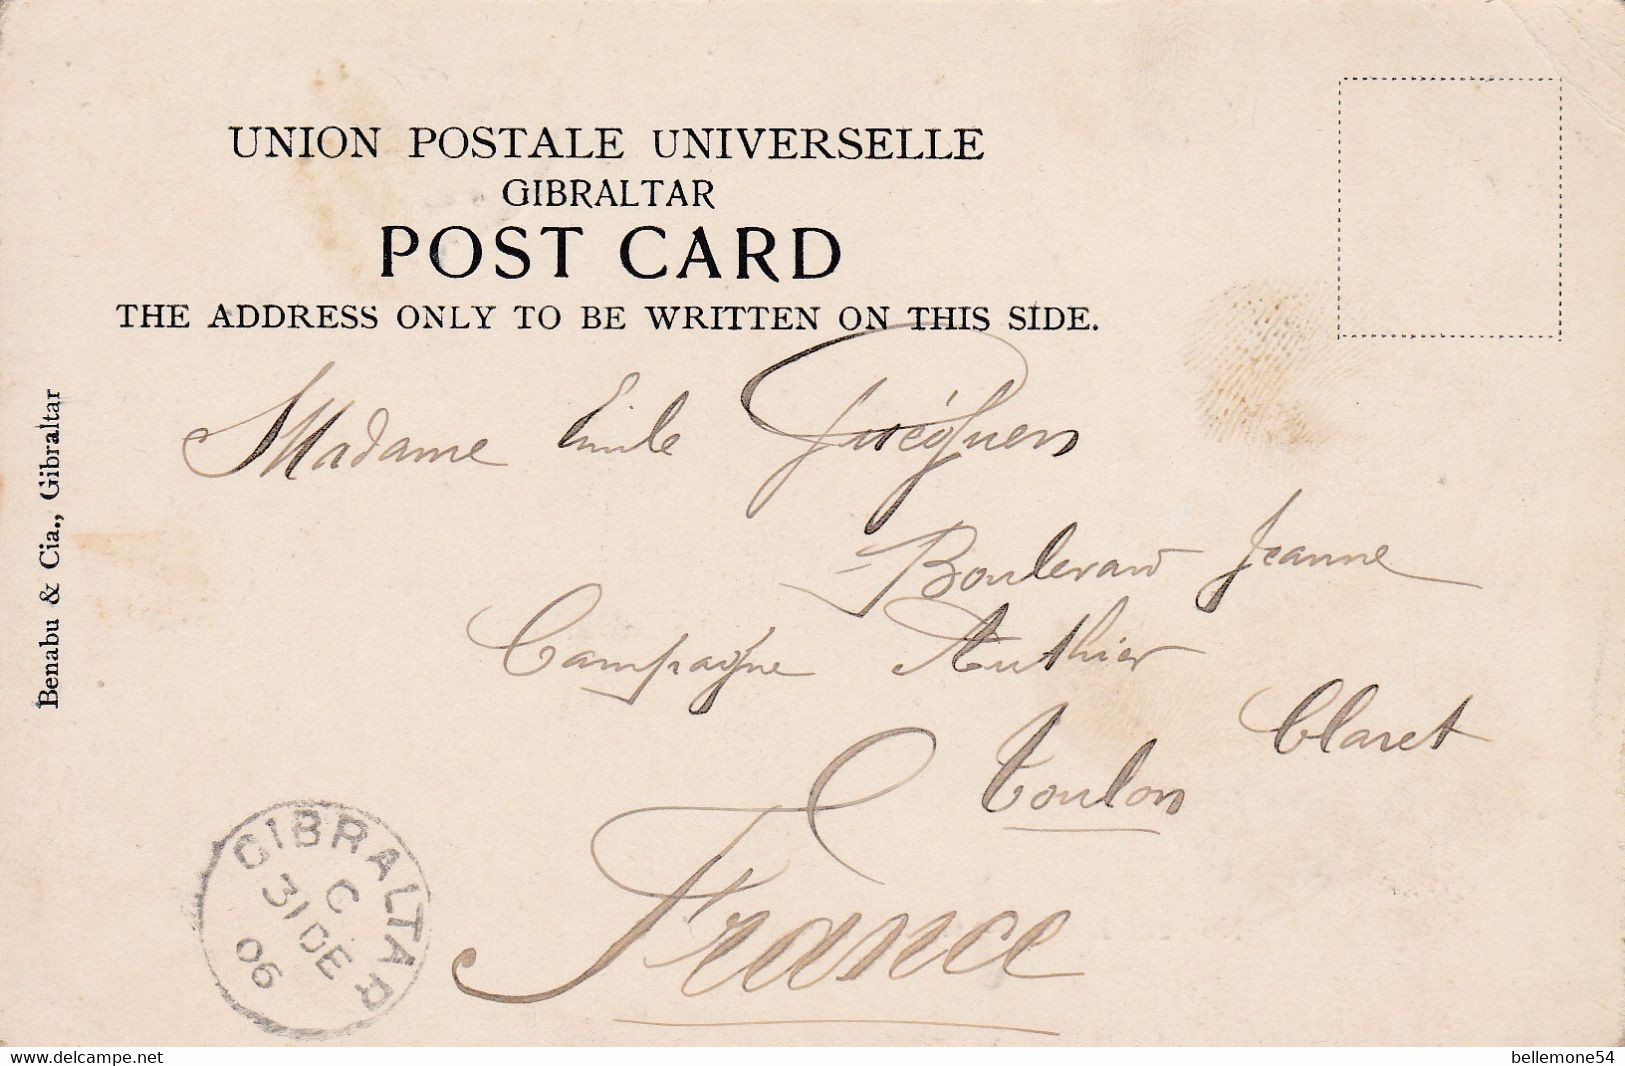 UNION POSTALE UNIVERSELLE
GIBRALTAR
POST CARD
THE ADDRESS ONLY TO BE WRITTEN ON THIS SIDE.
Benabu & Cia., Gibraltar
Madame Emile Guéguen
Boulevard Jeanne
Campagne Authier
Claret
Toulon
France
GIBRALTAR
C
31 DE
06
delcampe.net
bellemone54